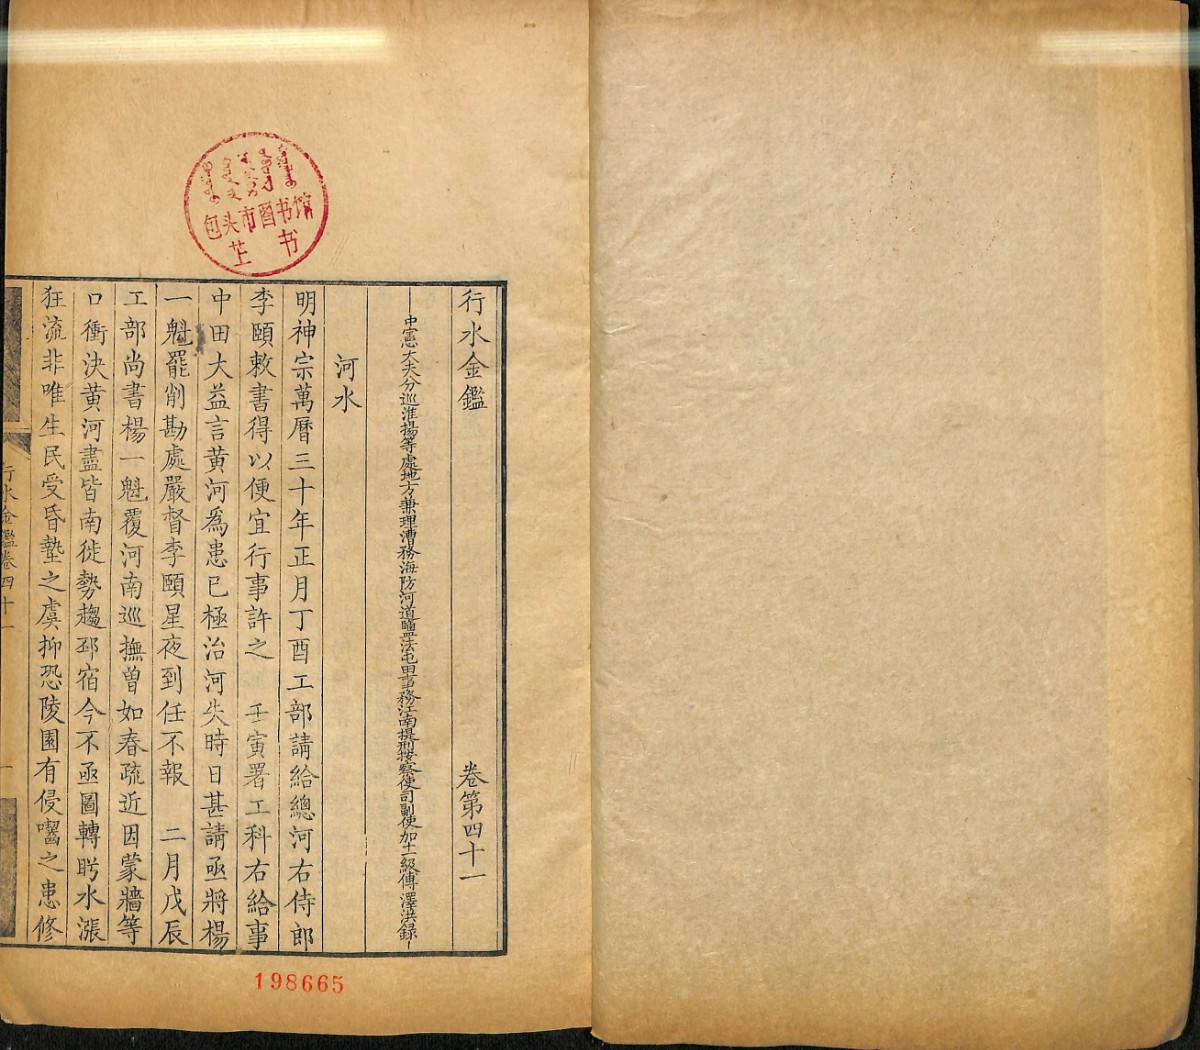 行水金鑑 卷第四十一
中憲大夫分巡淮揚等處地方兼理漕務海防河道鹽法屯田事務江南提刑按察使司副使加二級傅澤洪錄
河水
明神宗萬曆三十年正月丁酉工部請給總河右侍郎
李頤敕書得以便宜行事許之 壬寅署工科右給事
中田大益言黃河爲患已極治河失時日甚請亟將楊
一魁罷削勘處嚴督李頤星夜到任不報 二月戊辰
工部尚書楊一魁覆河南巡撫曾如春疏近因蒙牆等
口衝決黃河盡皆南徙勢趨邳宿今不亟圖轉盻水漲
狂流非唯生民受昏墊之虞抑恐陵園有侵嚙之患修
行水金鑑卷四十一
一
包头市图书馆
书
198665